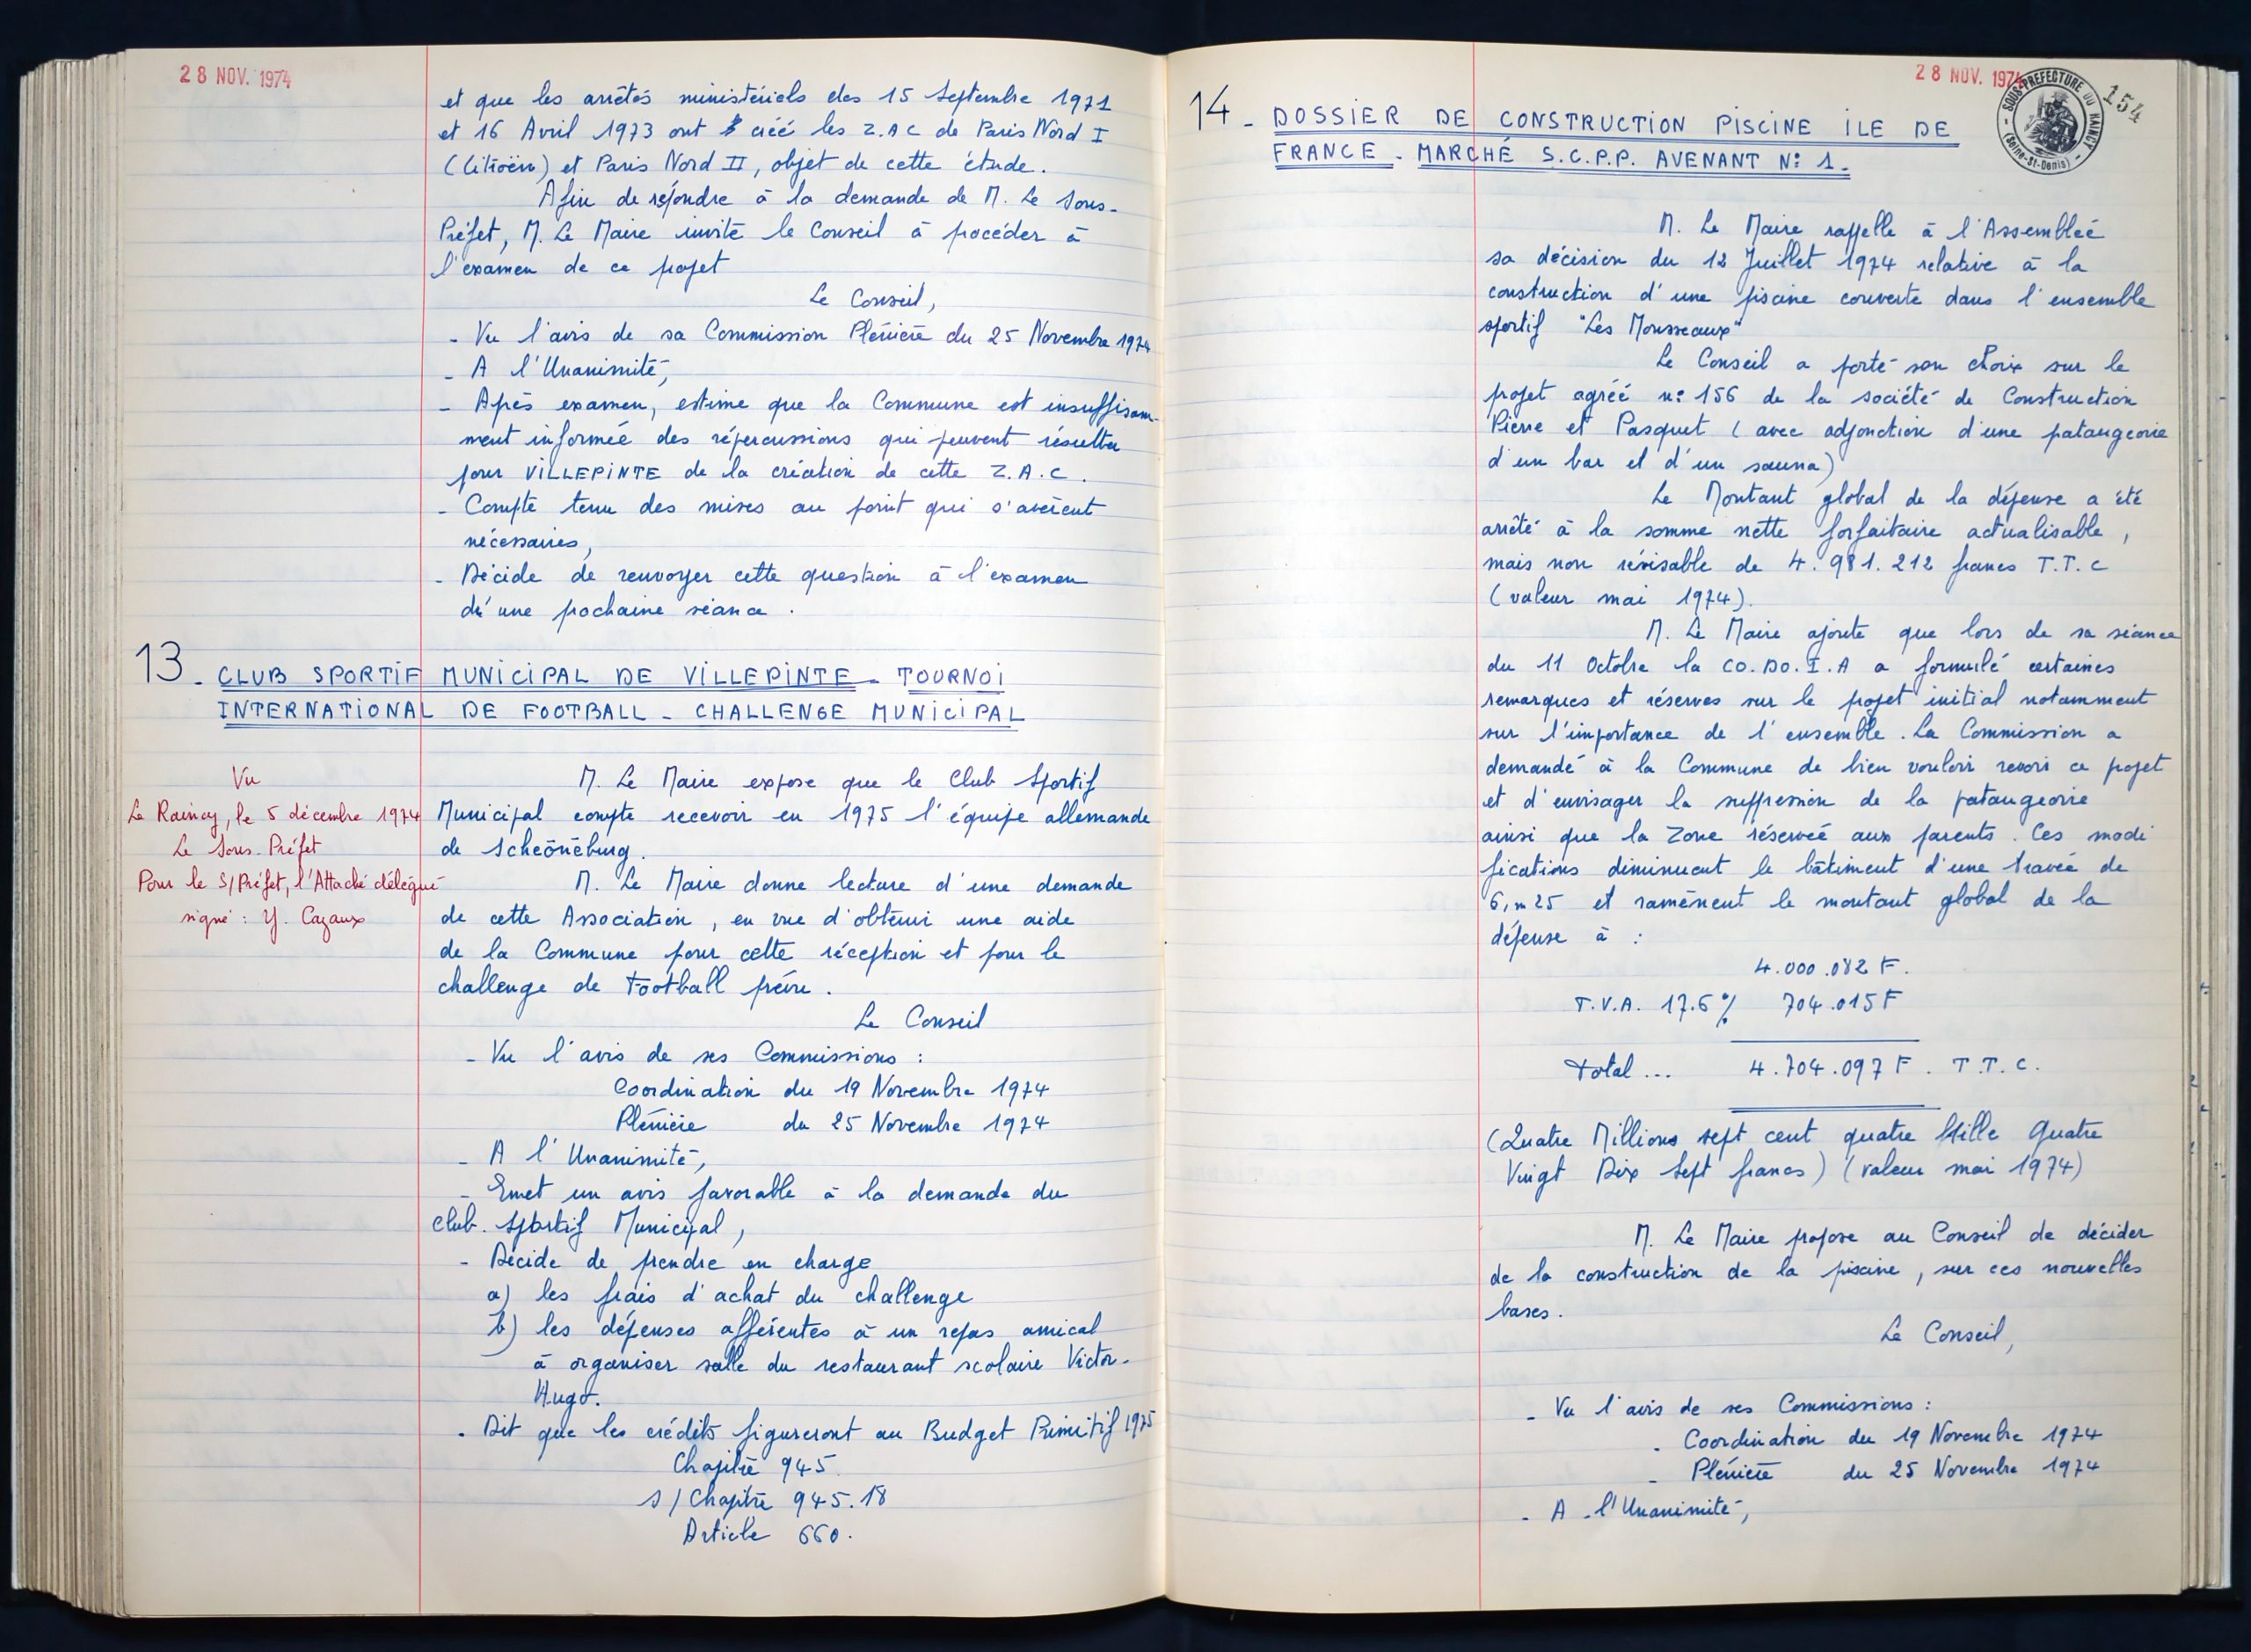 28 NOV. 1974
et que les arrêtés ministériels des 15 Septembre 1971
et 16 Avril 1973 ont créé les Z.A.C de Paris Nord I
(Citroën) et Paris Nord II, objet de cette étude.
Afin de répondre à la demande de M. Le Sous-
Préfet, M. Le Maire invite le Conseil à procéder à
l'examen de ce projet
Le Conseil,
- Vu l'avis de sa Commission Plénière du 25 Novembre 1974
- A l'Unanimité,
- Après examen, estime que la Commune est insuffisam-
ment informée des répercussions qui peuvent résulter
pour VILLEPINTE de la création de cette Z.A.C.
- Compte tenu des mises au point qui s'avèrent
nécessaires,
- Décide de renvoyer cette question à l'examen
d'une prochaine séance.
13 - CLUB SPORTIF MUNICIPAL DE VILLEPINTE - TOURNOI
INTERNATIONAL DE FOOTBALL - CHALLENGE MUNICIPAL
Vu
Le Raincy, le 5 décembre 1974
Le Sous-Préfet
Pour le S/Préfet, l'Attaché délégué
signé : Y. Cazaux
M. Le Maire expose que le Club Sportif
Municipal compte recevoir en 1975 l'équipe allemande
de Scheönëburg.
M. Le Maire donne lecture d'une demande
de cette Association, en vue d'obtenir une aide
de la Commune pour cette réception et pour le
challenge de Football prévu.
Le Conseil
- Vu l'avis de ses Commissions :
Coordination du 19 Novembre 1974
Plénière du 25 Novembre 1974
- A l'Unanimité,
- Emet un avis favorable à la demande du
Club. Sportif Municipal,
- Décide de prendre en charge
a) les frais d'achat du challenge
b) les dépenses afférentes à un repas amical
à organiser salle du restaurant scolaire Victor-
Hugo.
- Dit que les crédits figureront au Budget Primitif 1975
Chapitre 945
S/Chapitre 945.18
Article 660.
28 NOV. 1974
SOUS-PREFECTURE DU RAINCY
(Seine-St-Denis)
154
14 - DOSSIER DE CONSTRUCTION PISCINE ILE DE
FRANCE - MARCHÉ S.C.P.P. AVENANT N: 1.
M. Le Maire rappelle à l'Assemblée
sa décision du 12 Juillet 1974 relative à la
construction d'une piscine couverte dans l'ensemble
sportif "Les Mousseaux"
Le Conseil a porté son choix sur le
projet agréé n: 156 de la société de Construction
Pierre et Pasquet (avec adjonction d'une pataugeoire
d'un bar et d'un sauna)
Le Montant global de la dépense a été
arrêté à la somme nette forfaitaire actualisable,
mais non révisable de 4.981.212 francs T.T.C
(valeur mai 1974).
M. Le Maire ajoute que lors de sa séance
du 11 Octobre la CO.DO.I.A a formulé certaines
remarques et réserves sur le projet initial notamment
sur l'importance de l'ensemble. La Commission a
demandé à la Commune de bien vouloir revoir ce projet
et d'envisager la suppression de la pataugeoire
ainsi que la Zone réservée aux parents. Ces modi
fications diminuent le bâtiment d'une travée de
6,m25 et ramènent le montant global de la
dépense à :
4.000.082 F.
T.V.A. 17.6% 704.015 F
Total ... 4.704.097 F. T.T.C.
(Quatre Millions sept cent quatre Mille Quatre
Vingt Dix Sept francs) (valeur mai 1974)
M. Le Maire propose au Conseil de décider
de la construction de la piscine, sur ces nouvelles
bases.
Le Conseil,
- Vu l'avis de ses Commissions :
- Coordination du 19 Novembre 1974
- Plénière du 25 Novembre 1974
- A l'Unanimité,